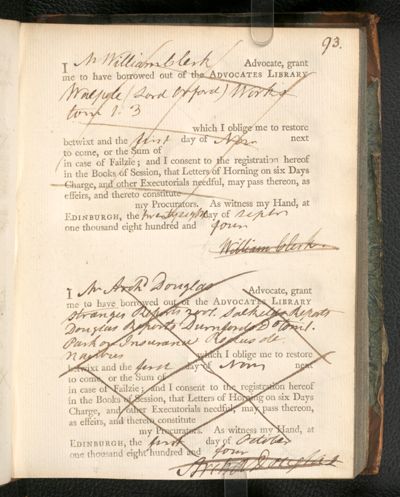 93.
I Mr William Clerk Advocate, grant
me to have borrowed out of the ADVOCATES LIBRARY
Walpole (Lord Orford) Works
tom 1. 3
which I oblige me to restore
betwixt and the first day of Novr next
to come, or the Sum of
in case of Failzie; and I consent to the registration hereof
in the Books of Session, that Letters of Horning on six Days
Charge, and other Executorials needful, may pass thereon, as
effeirs, and thereto constitute
my Procurators. As witness my Hand, at
EDINBURGH, the twentyeight day of Septr
one thousand eight hundred and four
William Clerk
I Mr Archd Douglas Advocate, grant
me to have borrowed out of the ADVOCATES LIBRARY
Stranges Reports 2 vol. Salkelds Reports
Douglas Reports Durnford Do tom 1.
Park on Insurance
which I oblige me to restore
betwixt and the first day of Novr next
to come, or the Sum of
in case of Failzie; and I consent to the registration hereof
in the Books of Session, that Letters of Horning on six Days
Charge, and other Executorials needful, may pass thereon,
as effeirs, and thereto constitute
my Procurators. As witness my Hand, at
EDINBURGH, the first day of October
one thousand eight hundred and four
Archd Douglas